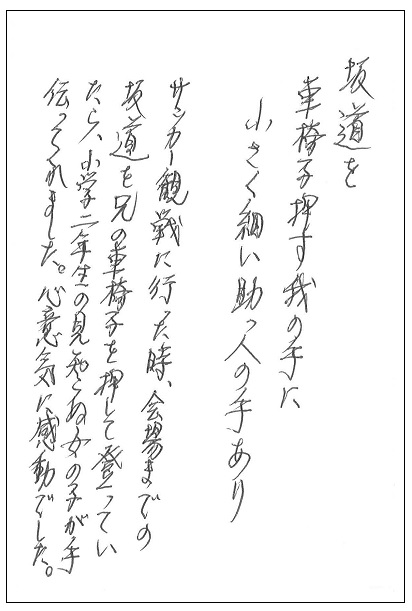 坂道を
車椅子押す我の手に
小さく細い助っ人の手あり
サッカー観戦に行った時、会場までの
坂道を兄の車椅子を押して登ってい
たら、小学二年生の見知らぬ女の子が手
伝ってくれました。心意気に感動でした。